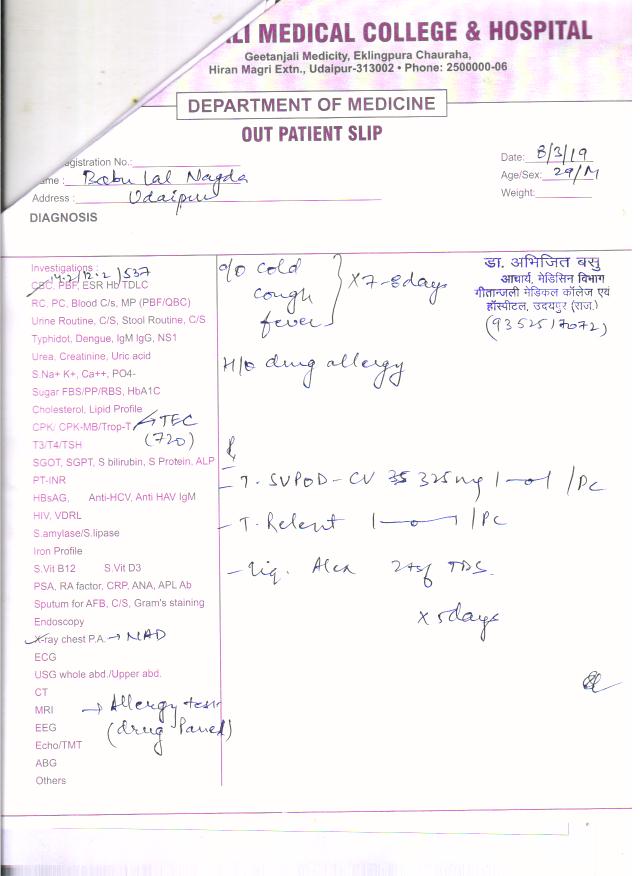 ALI MEDICAL COLLEGE & HOSPITAL
Geetanjali Medicity, Eklingpura Chauraha,
Hiran Magri Extn., Udaipur-313002 • Phone: 2500000-06
DEPARTMENT OF MEDICINE
OUT PATIENT SLIP
egistration No.:
Date: 8/3/19
ame : Babu lal Nagda
Age/Sex: 29/M
Address : Udaipur
Weight:
DIAGNOSIS
Investigations :
14.2/12.2/537
CBC, PBF, ESR Hb TDLC
RC, PC, Blood C/s, MP (PBF/QBC)
Urine Routine, C/S, Stool Routine, C/S
Typhidot, Dengue, IgM IgG, NS1
Urea, Creatinine, Uric acid
S.Na+ K+, Ca++, PO4-
Sugar FBS/PP/RBS, HbA1C
Cholesterol, Lipid Profile
CPK, CPK-MB/Trop-T → TEC
(720)
T3/T4/TSH
SGOT, SGPT, S bilirubin, S Protein, ALP
PT-INR
HBsAG, Anti-HCV, Anti HAV IgM
HIV, VDRL
S.amylase/S.lipase
Iron Profile
S.Vit B12 S.Vit D3
PSA, RA factor, CRP, ANA, APL Ab
Sputum for AFB, C/S, Gram's staining
Endoscopy
X-ray chest P.A. → NAD
ECG
USG whole abd./Upper abd.
CT
MRI → Allergy test
EEG (drug Panel)
Echo/TMT
ABG
Others
cold
cough
fever
X 7-8 days
H/o drug allergy
डा. अभिजित बसु
आचार्य, मेडिसिन विभाग
गीतान्जली मेडिकल कॉलेज एवं
हॉस्पीटल, उदयपुर (राज.)
- T. 325 mg 1-0-1 /PC
- T. Relent 1-0-1 /PC
- Liq. Alex 2tsf TDS
x 5days